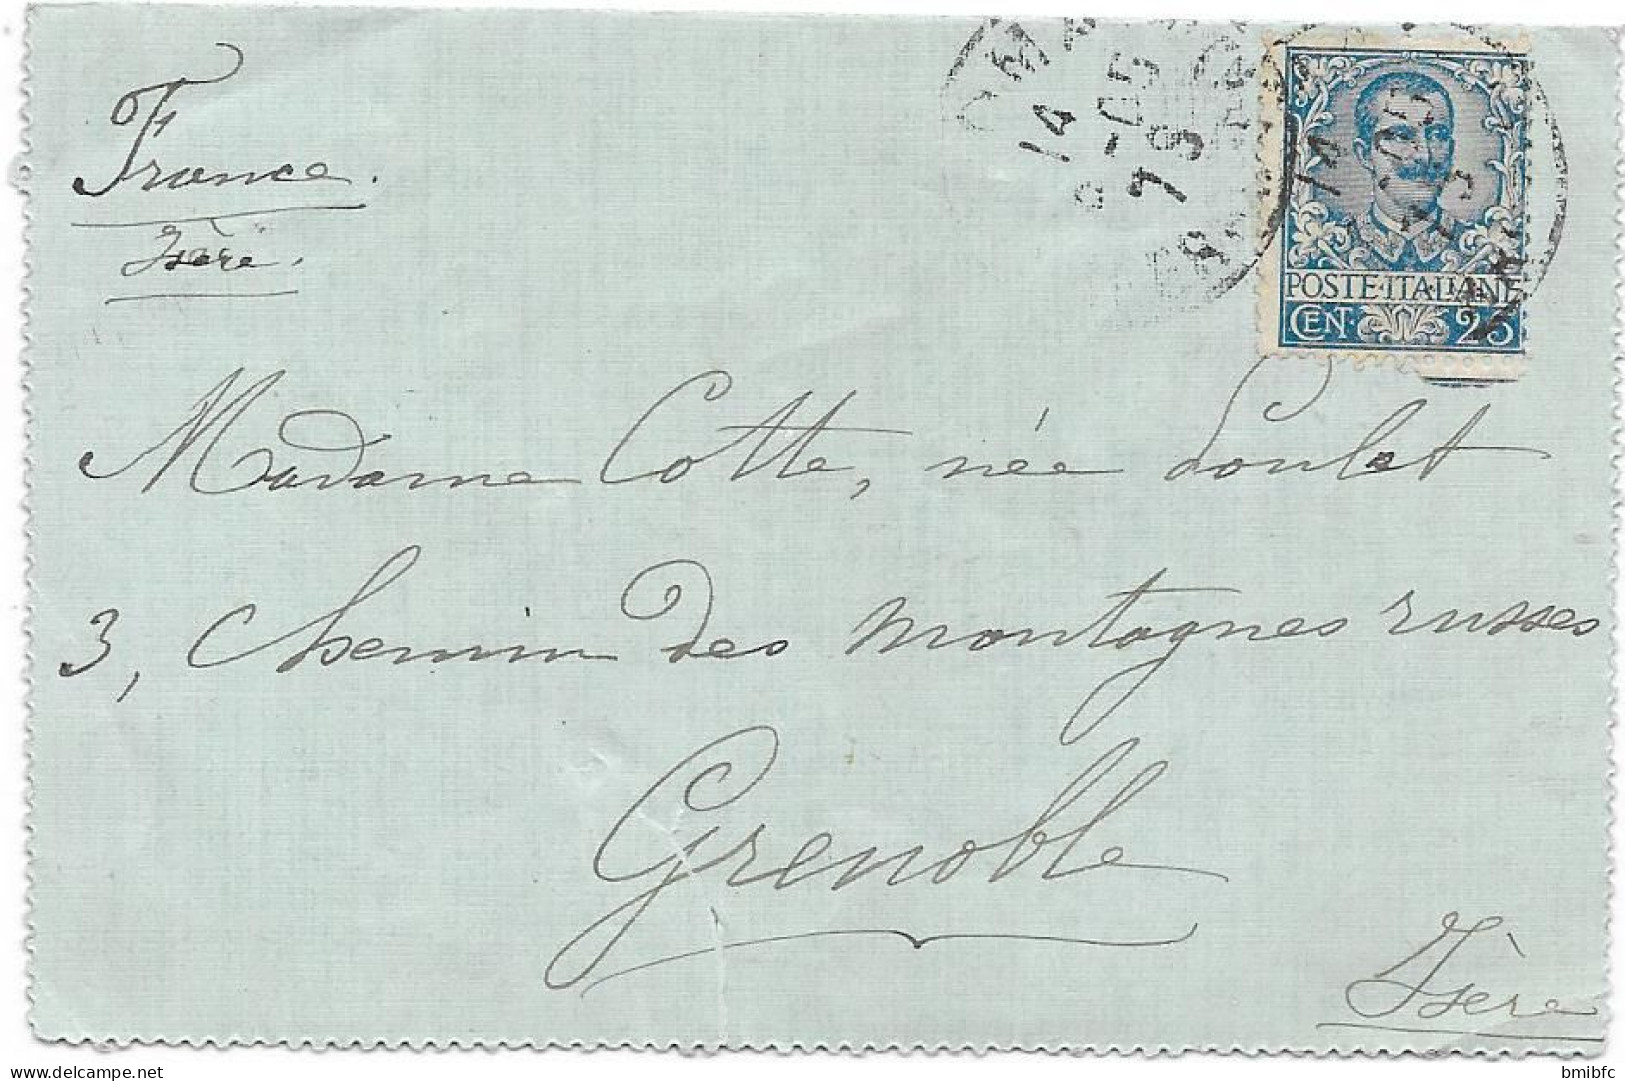 France.
Isère.
14
8-05
7 S
POSTE·ITALIANE
CEN· 25
Madame Cotte, née Poulet
3, Chemin des montagnes russes
Grenoble
Isère
bmibfc